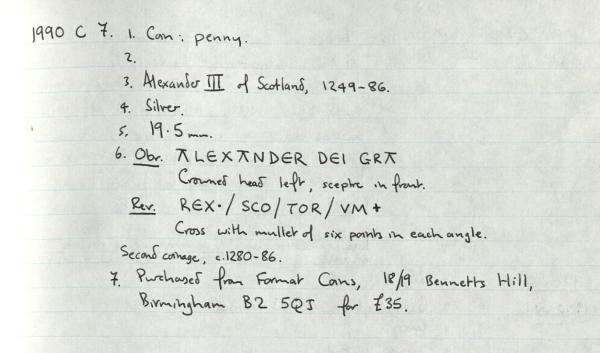 1990 C 7. 1. Coin: penny.
2.
3. Alexander III of Scotland, 1249-86.
4. Silver.
5. 19.5 mm.
6. Obv. ΛLEXΛNDER DEI GRΛ
Crowned head left, sceptre in front.
Rev. REX·/ SCO/ TOR/ VM +
Cross with mullet of six points in each angle.
Second coinage, c.1280-86.
7. Purchased from Format Coins, 18/19 Bennetts Hill,
Birmingham B2 5QJ for £35.